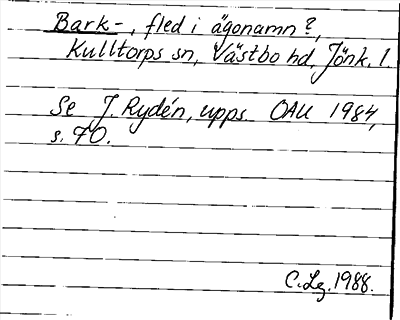 Bark-, fled i ägonamn?,
Kulltorps sn, Västbo hd, Jönk. l.
Se J. Rydén, upps. OAU 1984,
s. 70.
C.Lg. 1988.